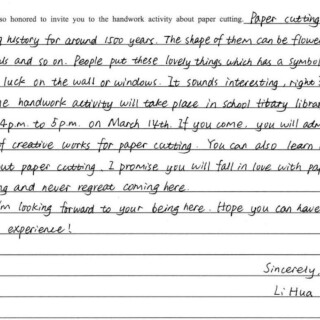 so honored to invite you to the handwork activity about paper cutting. Paper cutting
history for around 1500 years. The shape of them can be flower
and so on. People put these lovely things which has a symbol
luck on the wall or windows. It sounds interesting, right?
handwork activity will take place in school libary library
4p.m. to 5p.m. on March 14th. If you come, you will adm
of creative works for paper cutting. You can also learn
paper cutting. I promise you will fall in love with pap
and never regreat coming here.
I'm looking forward to your being here. Hope you can have
experience!
Sincerely,
Li Hua